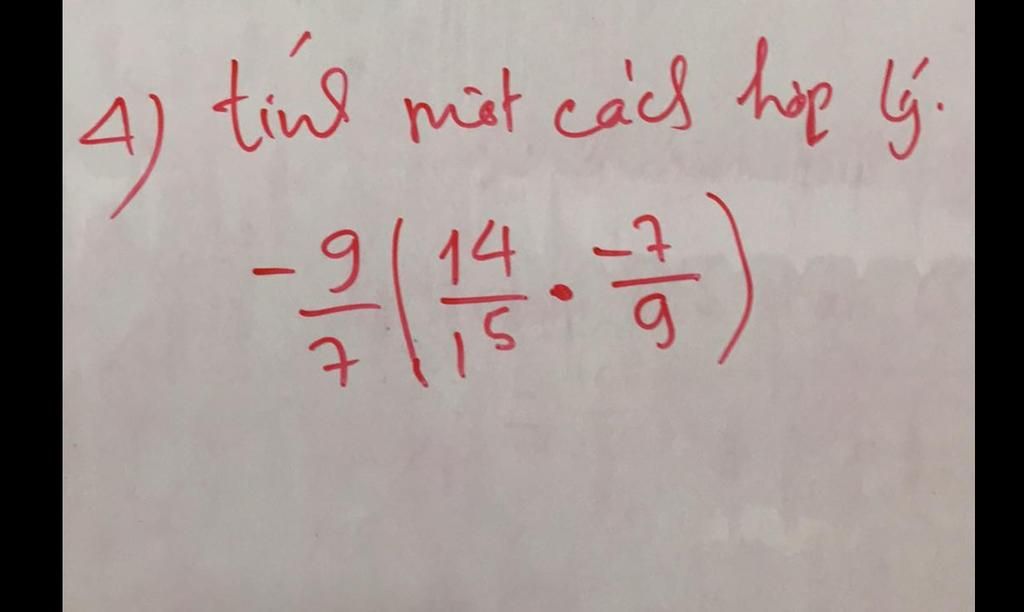 4) tính một cách hợp lý.
-9/7 (14/15 · -7/9)